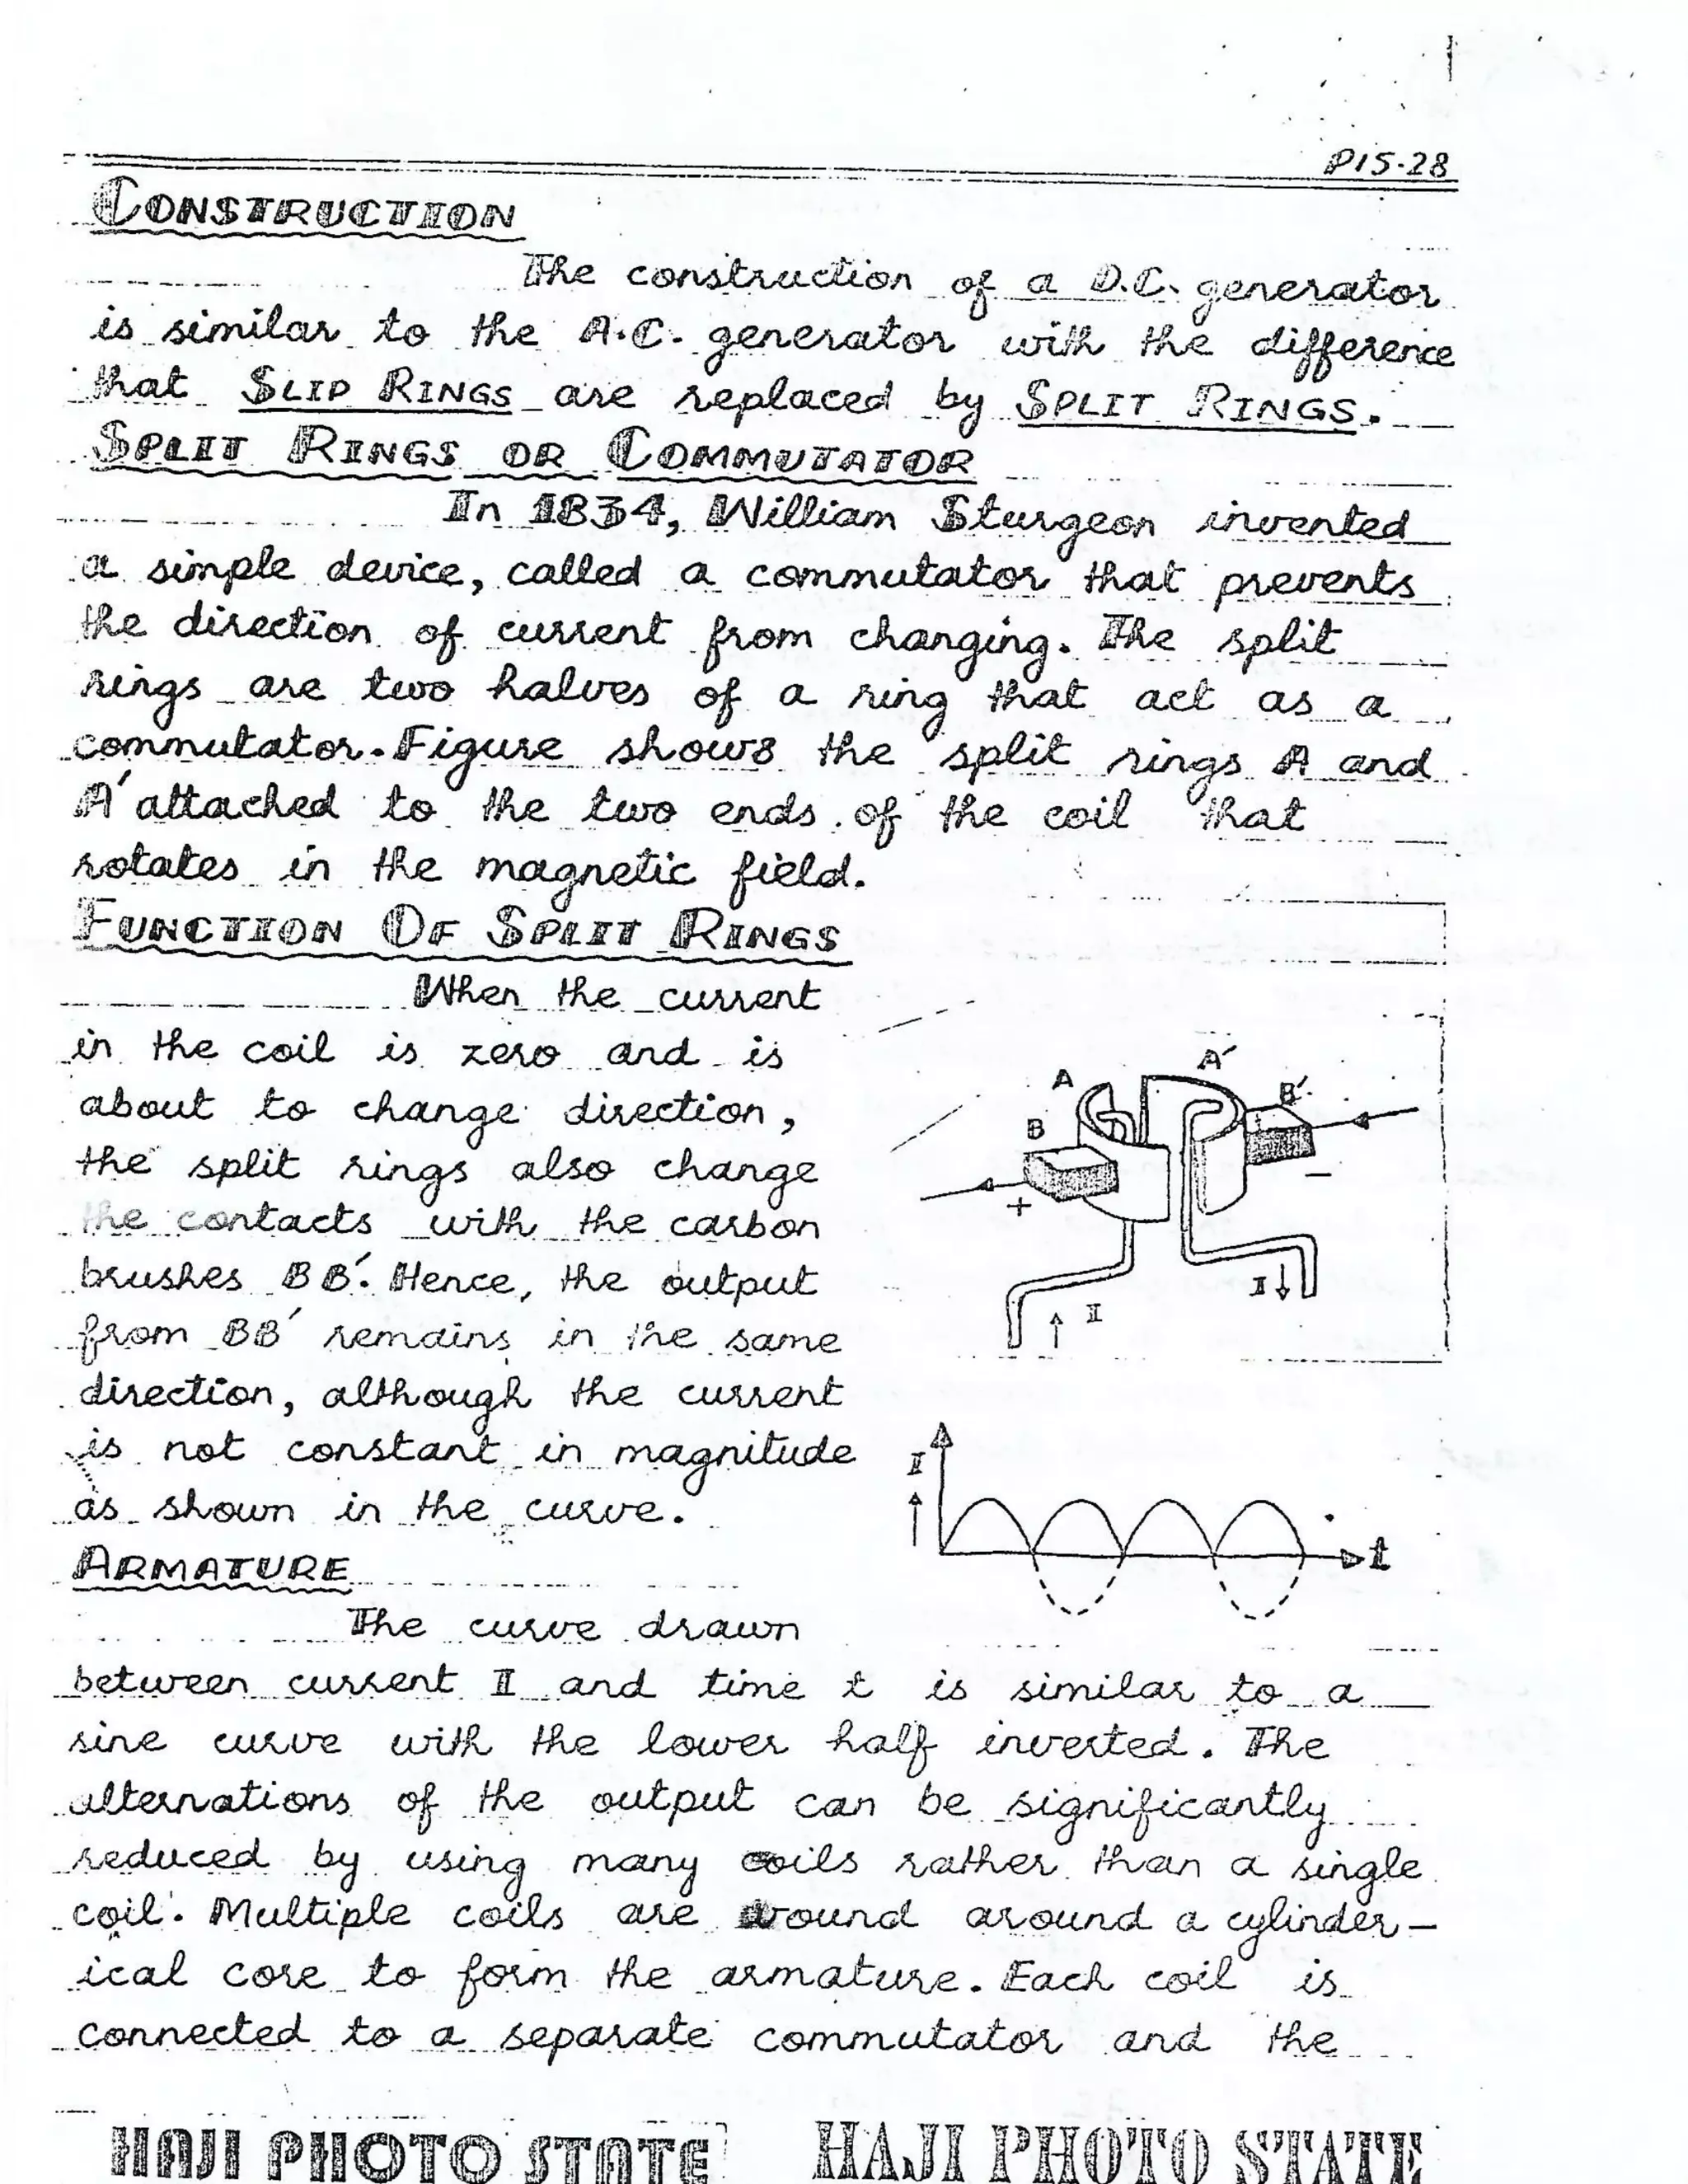 P15-28
CONSTRUCTION
The construction of a D.C. generator
is similar to the A.C. generator with the difference
that SLIP RINGS are replaced by SPLIT RINGS.
SPLIT RINGS OR COMMUTATOR
In 1834, William Sturgeon invented
a simple device, called a commutator that prevents
the direction of current from changing. The split
rings are two halves of a ring that act as a
commutator. Figure shows the split rings A and
A′ attached to the two ends of the coil that
rotates in the magnetic field.
FUNCTION OF SPLIT RINGS
When the current
in the coil is zero and is
about to change direction,
the split rings also change
the contacts with the carbon
brushes BB′. Hence, the output
from BB′ remains in the same
direction, although the current
is not constant in magnitude
as shown in the curve.
A
A′
B
B′
+
−
I
I
I
t
ARMATURE
The curve drawn
between current I and time t is similar to a
sine curve with the lower half inverted. The
alternations of the output can be significantly
reduced by using many coils rather than a single
coil. Multiple coils are wound around a cylinder-
ical core to form the armature. Each coil is
connected to a separate commutator and the
HAJI PHOTO STATE HAJI PHOTO STATE